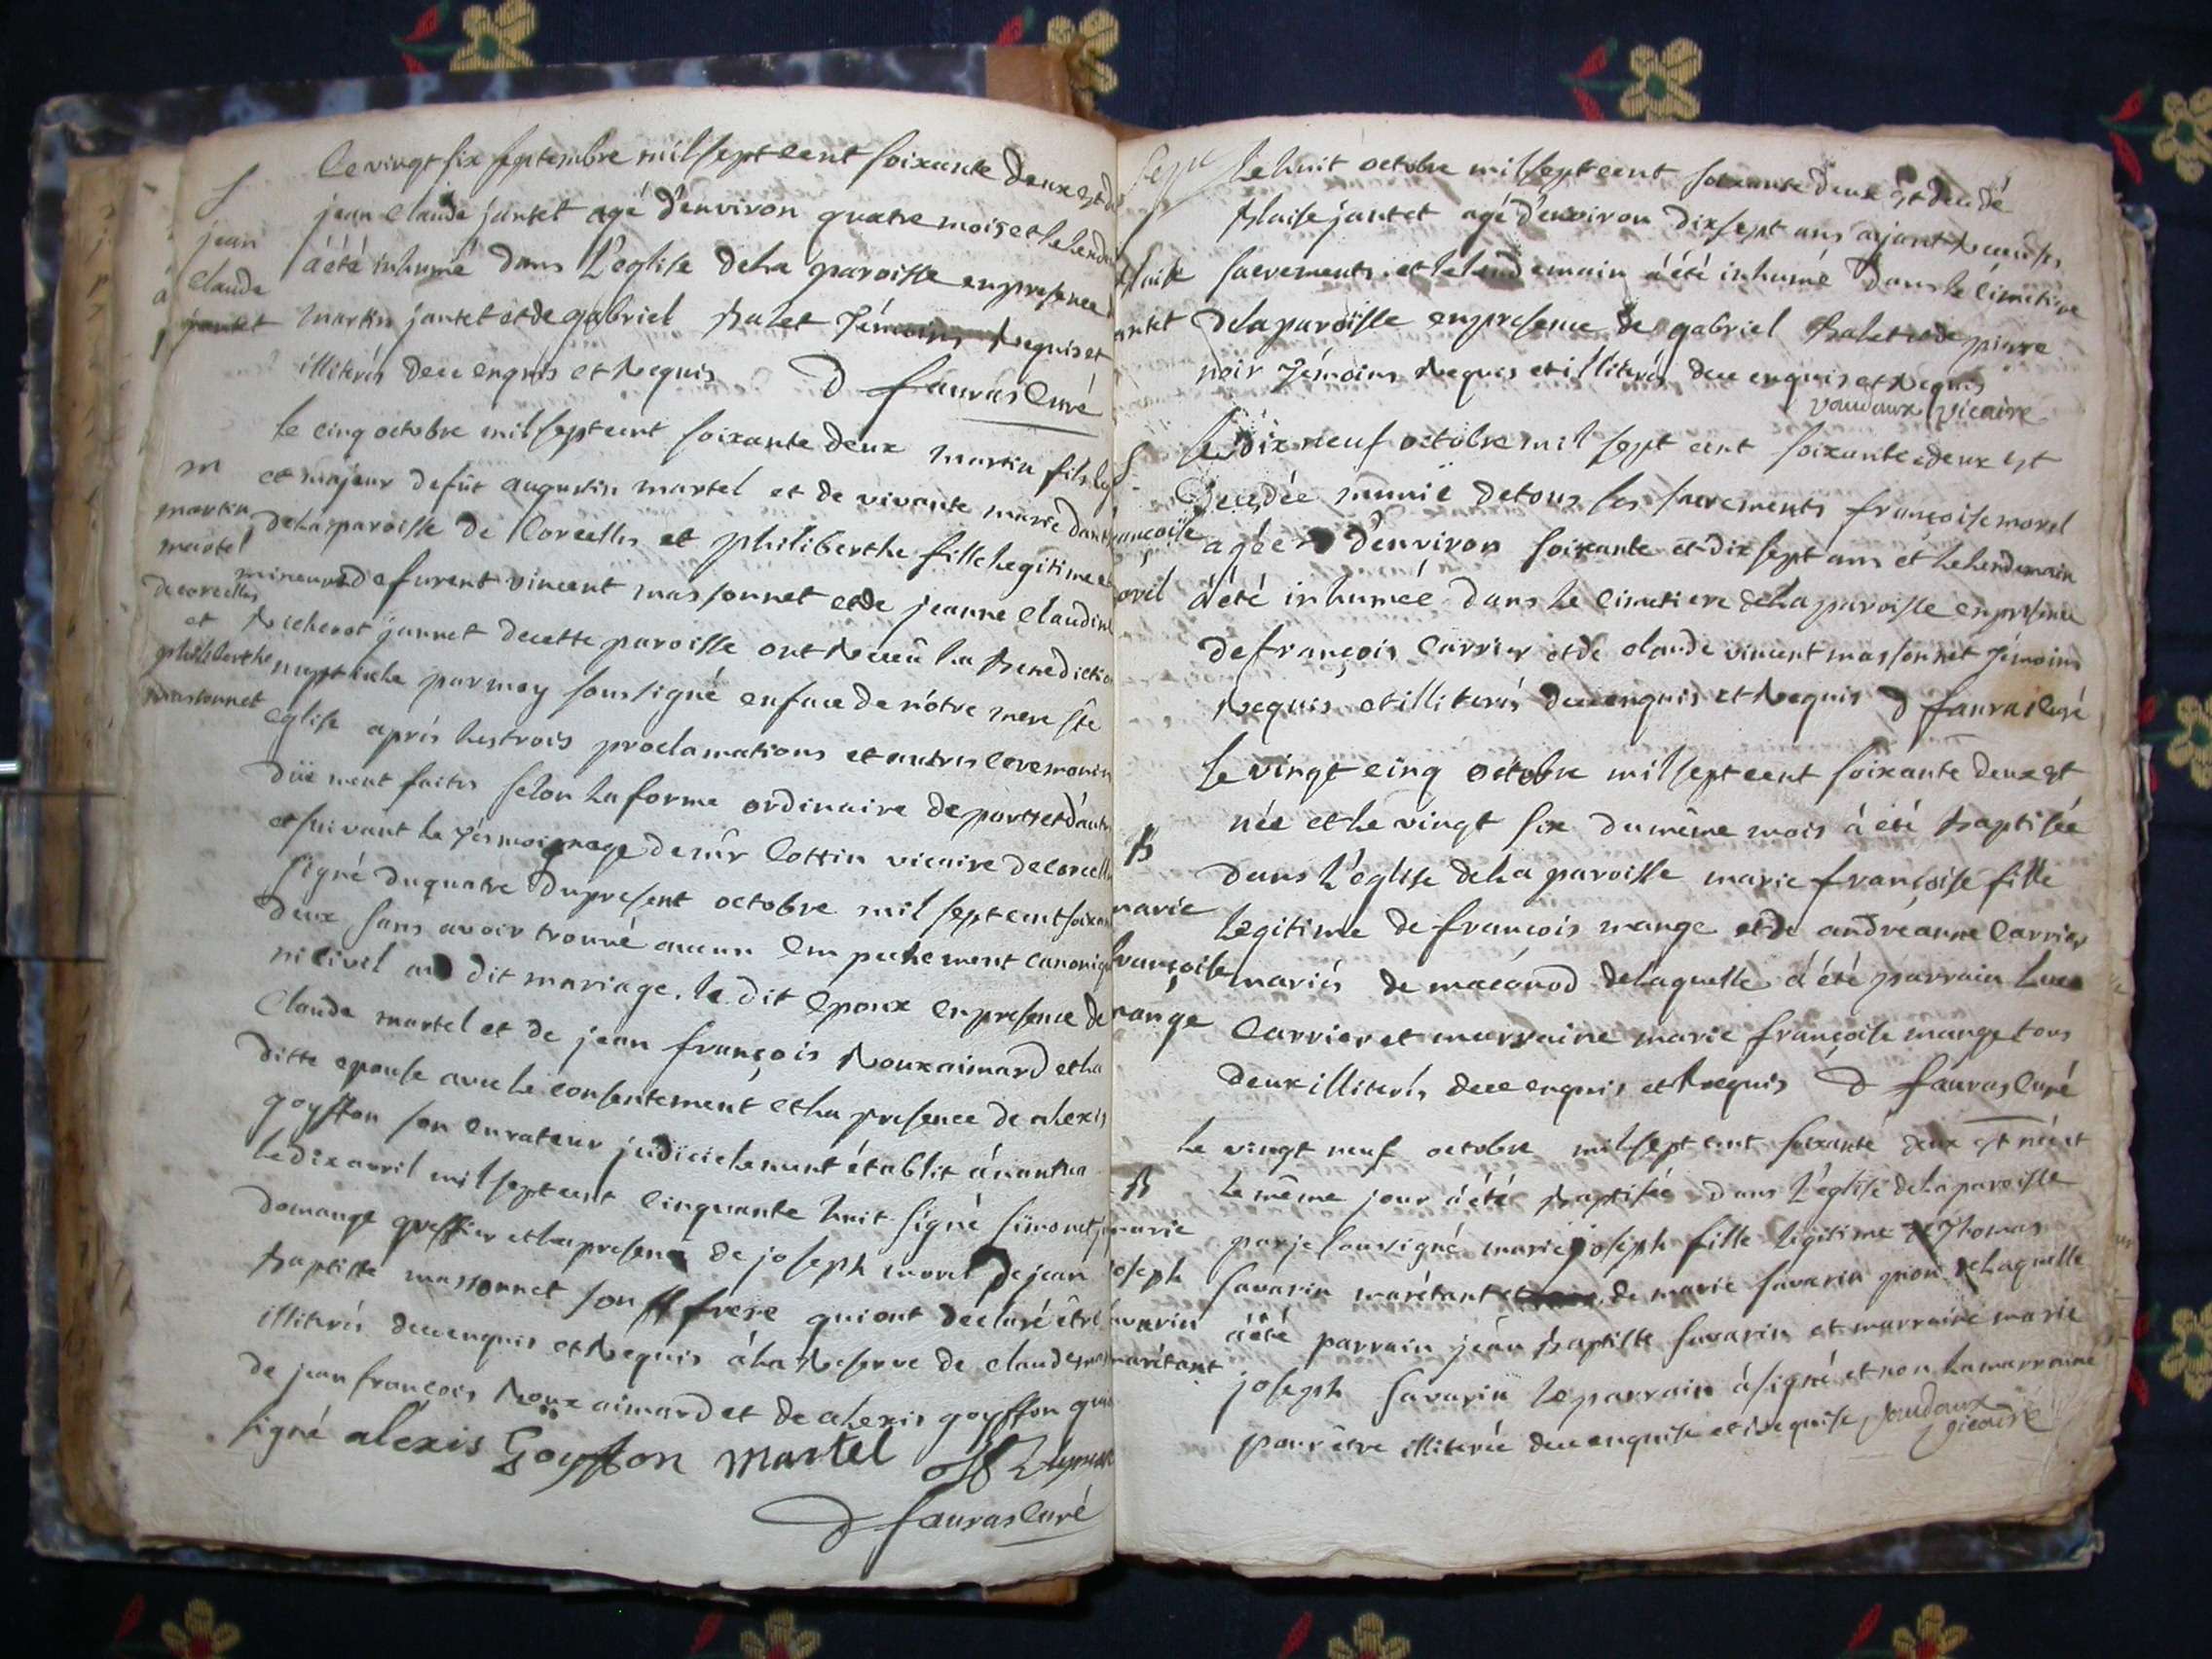 Le vingt six septembre mil sept cent soixante deux est
jean claude jantet agé d'environ quatre mois et le lend
à été inhumé dans L'eglise de la paroisse en presence
martin jantet et de gabriel balet témoins requis et
illiterés de ce enquis et requis D fauras curé
S
jean
claude
jantet
Le cinq octobre mil sept cent soixante deux martin fils
et majeur de fût augustin martel et de vivante marie
de la paroisse de Corcelles et philiberthe fille legitime et
mineure de furent vincent massonnet et de jeanne claudine
richerot jannet de cette paroisse ont receu la benedictio
nuptiale par moy soussigné en face de nôtre mere ste
eglise aprés les trois proclamations et autres ceremonies
düement faites selon la forme ordinaire de part et d'autre
et suivant le témoignage de mr Cottin vicaire de corcelle
signé du quatre du present octobre mil sept cent soixan
deux sans avoir trouvé aucun Empechement canoniqu
ni civil au dit mariage. le dit Epoux en presence de
Claude martel et de jean françois Roux aimard et la
ditte epouse avec le consentement et la presence de alexis
goyffon son curateur judicielement établit á nantua
le dix avril mil sept cent cinquante huit signé simonet
domange greffier et la presence de joseph morel de jean
baptiste massonnet son frere qui ont declaré être
illiterés de ce enquis et requis á la reserve de claude
de jean françois Roux aimard et de alexis goyffon qui
signé alexis Goyffon martel
D fauras curé
m
martin
martel
de corcelles
et
philiberthe
massonnet
Le huit octobre mil sept cent soixante deux est decedé
blaise jantet agé d'environ dix sept ans ayant receu ses
sacrements et le lendemain à été inhumé dans le cimetiere
de la paroisse en presence de gabriel balet et de pierre
noir témoins requis et illiterés de ce enquis et requis
vaudaux vicaire
S
blaise
jantet
Le dix neuf octobre mil sept cent soixante deux est
decedée munie de tous les sacrements françoise morel
agée d'environ soixante et dix sept ans et le lendemain
à été inhumée dans le cimetiere de la paroisse en presence
de françois carrier et de claude vincent massonnet témoins
requis et illiterés de ce enquis et requis D fauras curé
S
françoise
morel
Le vingt cinq octobre mil sept cent soixante deux est
née et le vingt six du même mois à été baptisée
dans L'église de la paroisse marie françoise fille
legitime de françois mange et de andreanne carrier
mariés de macônod de laquelle à été parrain luc
Carrier et marraine marie françoise mange tous
deux illiterés de ce enquis et requis D fauras curé
B
marie
françoise
mange
Le vingt neuf octobre mil sept cent soixante deux est née et
le même jour à été baptisée dans L'église de la paroisse
par je soussigné marie joseph fille legitime de thomas
savarin marétant de marie savarin de laquelle
à été parrain jean baptiste savarin et marraine marie
joseph savarin le parrain à signé et non la marraine
pour être illiterée de ce enquise et requise vaudaux
vicaire
B
marie
joseph
savarin
marétant